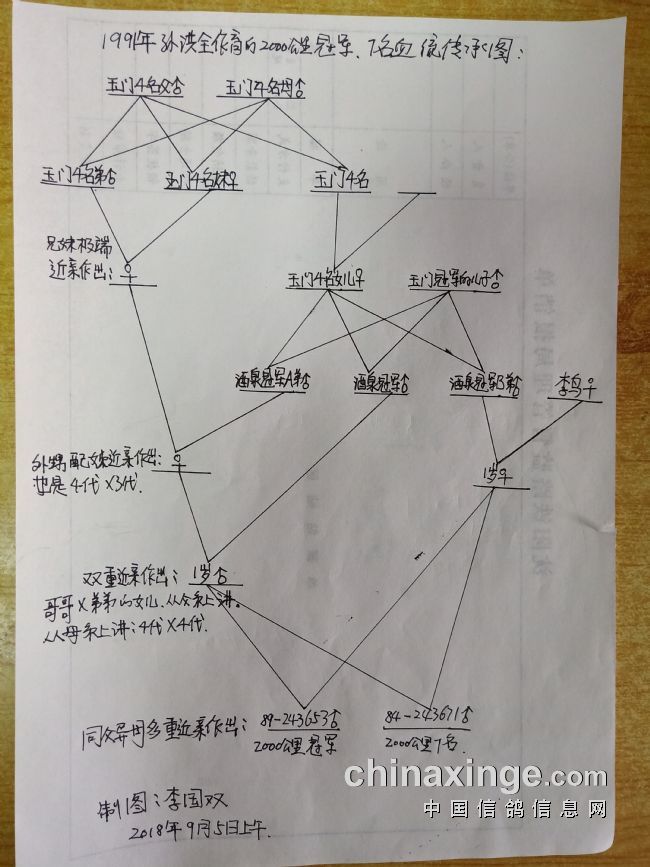 1991年孙洪全作育的2000公里冠军、7名血统传承图：
玉门4名父♂ 玉门4名母♂
玉门4名弟♂ 玉门4名妹♀ 玉门4名
兄妹极端
近亲作出：♀
玉门4名女儿♀ 玉门冠军的儿子♂
酒泉冠军A弟♂ 酒泉冠军♂ 酒泉冠军B弟♂ 李鸟♀
外甥配 近亲作出：♀
也是4代X3代.
1岁♀
双重近亲作出：1岁♂
哥哥X弟弟的女儿.从父系上讲。
从母系上讲：4代X4代.
同父异母多重近亲作出：89-243653♂ 84-243671♂
2000公里冠军 2000公里7名.
制图：李国双
2018年9月5日上午.
chinaxinge.com
中国信鸽信息网